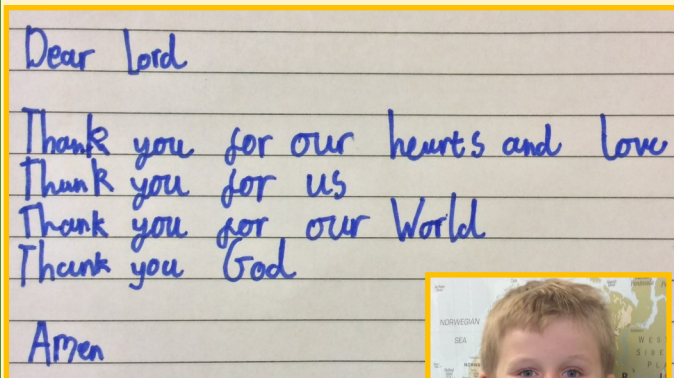 Dear Lord
Thank you for our hearts and love
Thank you for us
Thank you for our World
Thank you God
Amen
NORWEGIAN
SEA